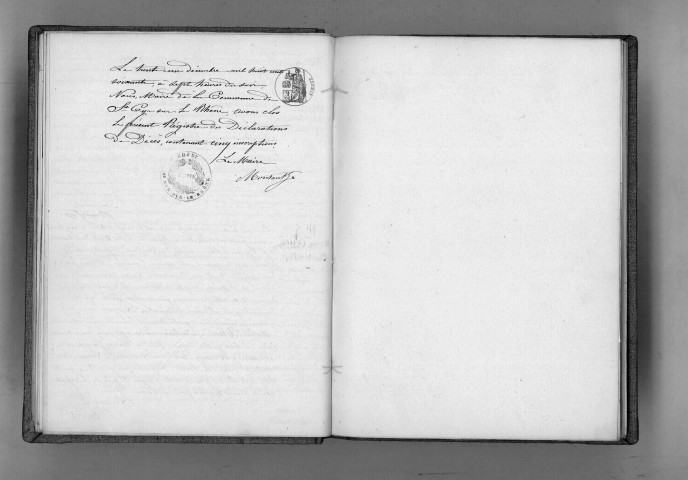 Le trente un décembre mil huit cent
soixante, à sept heures du soir
Nous, Maire de la Commune de
St Cyr sur le Rhône avons clos
le présent Registre des Déclarations
de Décès, contenant cinq inscriptions
Le Maire